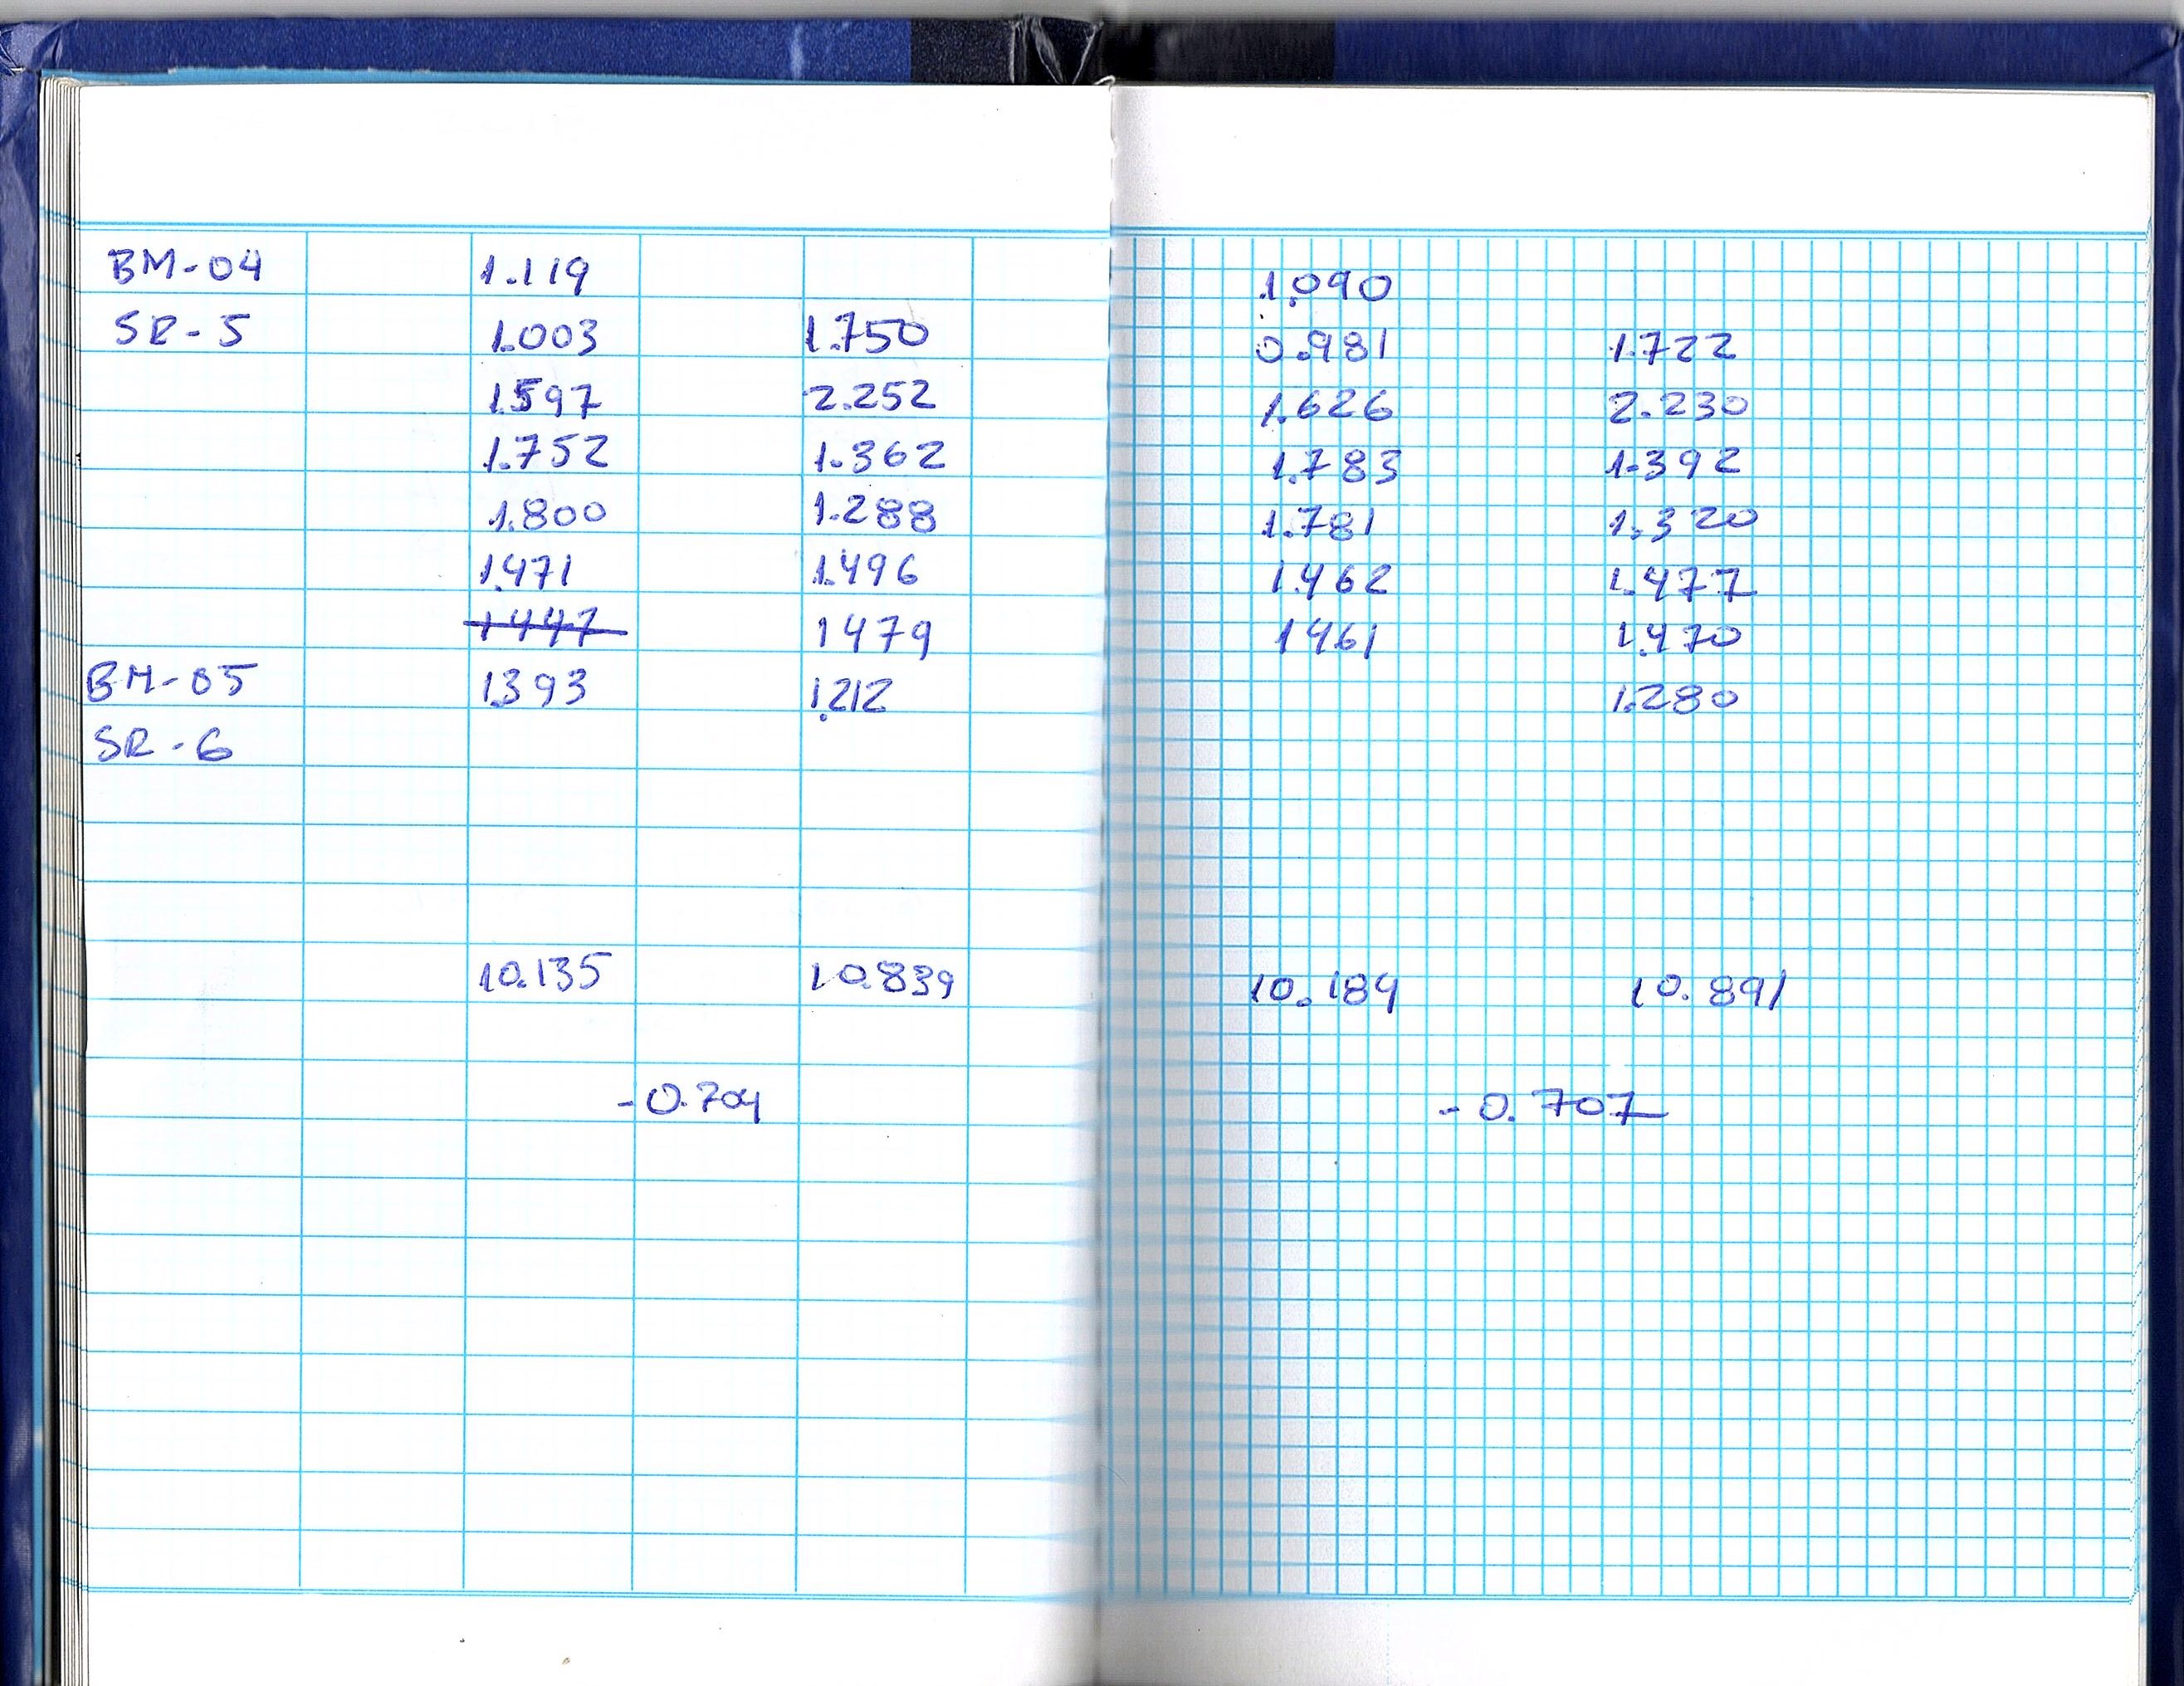 BM-04 1.119
SR-5 1.003 1.750
1.597 2.252
1.752 1.362
1.800 1.288
1.471 1.496
1447 1479
BM-05 1.393 1.212
SR-6
10.135 10.839
-0.704
1.090
0.981 1.722
1.626 2.230
1.783 1.392
1.781 1.320
1.462 1.477
1461 1.470
1.280
10.184 10.891
-0.707